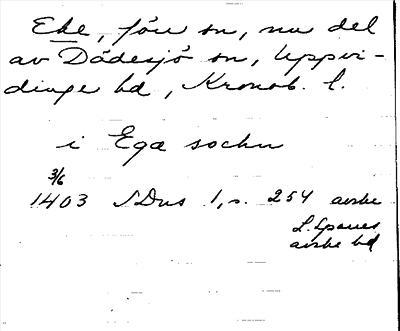 Eke, förr sn, nu del
av Dädesjö sn, Uppvi-
dinge hd, Kronob. l.
i Ega sochn
3/6
1403 SDns 1, s. 254 avskr
avskr bd